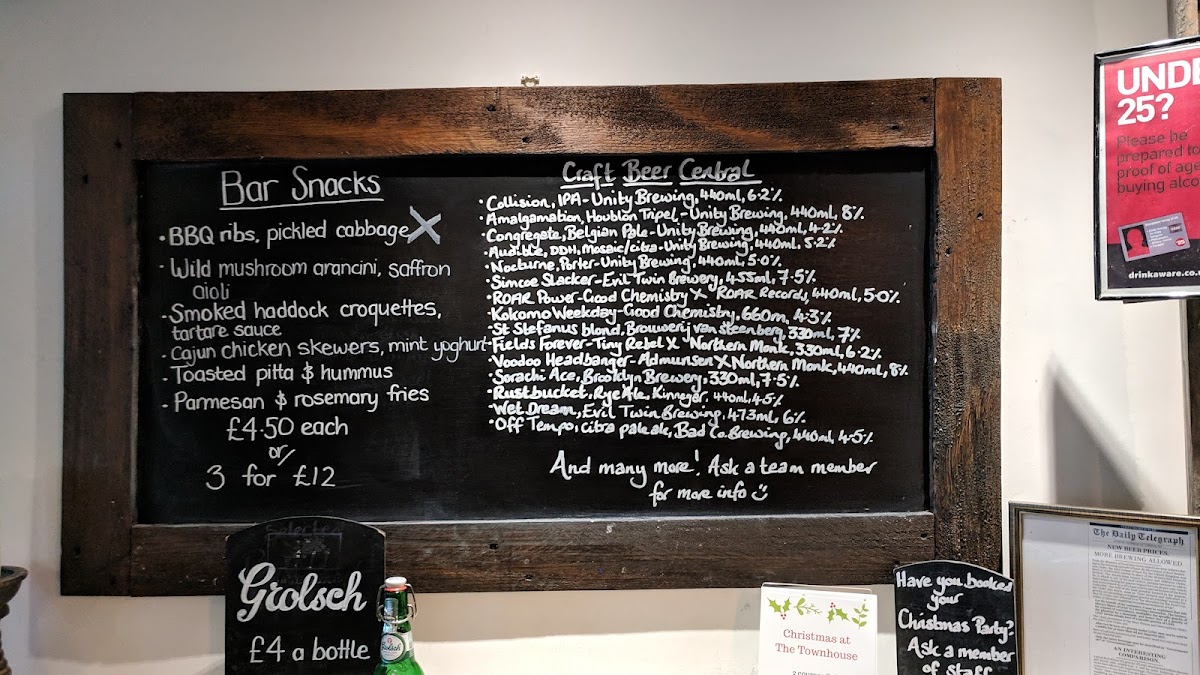 Bar Snacks
• BBQ ribs, pickled cabbage X
• Wild mushroom arancini, saffron
aioli
• Smoked haddock croquettes,
tartare sauce
• Cajun chicken skewers, mint yoghurt
• Toasted pitta & hummus
• Parmesan & rosemary fries
£4.50 each
or/
3 for £12
Craft Beer Central
• Collision, IPA - Unity Brewing, 440ml, 6.2%
• Amalgamation, Houblon Tripel, - Unity Brewing, 440ml, 8%
• Congregate, Belgian Pale - Unity Brewing, 440ml, 4.2%
• Audible, DDH, Mosaic/citra - Unity Brewing, 440ml, 5.2%
• Nocturne, Porter - Unity Brewing, 440ml, 5.0%
• Simcoe Slacker - Evil Twin Brewery, 455ml, 7.5%
• ROAR Power - Good Chemistry X ROAR Records, 440ml, 5.0%
• Kokomo Weekday - Good Chemistry, 660m, 4.3%
• St Stefanus blond, Brouwerij van Steenberg, 330ml, 7%
• Fields Forever - Tiny Rebel X Northern Monk, 330ml, 6.2%
• Voodoo Headbanger - Admunsen X Northern Monk, 440ml, 8%
• Sorachi Ace, Brooklyn Brewery, 330ml, 7.5%
• Rustbucket, Rye Ale, Kinnegar, 440ml, 4.5%
• Wet Dream, Evil Twin Brewing, 473ml, 6%
• Off Tempo, citra pale ale, Bad Co. Brewing, 440ml, 4.5%
And many more! Ask a team member
for more info
UNDE
25?
Please be
prepared to
proof of age
buying alco
drinkaware.co.u
Grolsch
£4 a bottle
Grolsch
Christmas at
The Townhouse
Have you booked
your
Christmas Party?
Ask a member
of staff
The Daily Telegraph
NEW BEER PRICES.
MORE BREWING ALLOWED.
AN INTERESTING
COMPARISON.